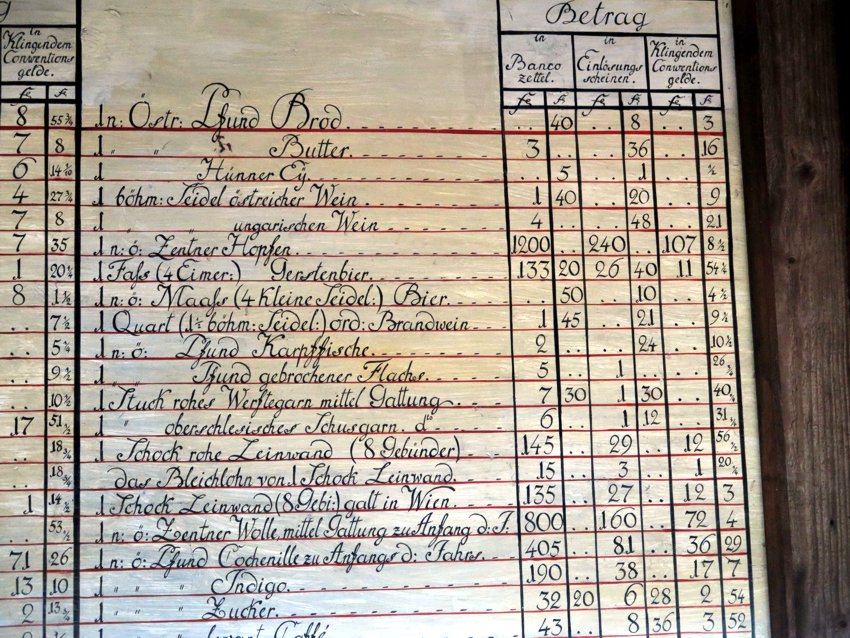 Betrag
in Klingendem Conventions gelde.
in Banco zettel.
in Einlösungs scheinen.
in Klingendem Conventions gelde.
fr k fr k fr k fr k
8 55¾ 1 n: Östr: Pfund Brod . . 40 . . 8 . . 3
7 8 1 " " " Butter. 3 . . . . 36 . . 16
6 1 Hünner Ey. . . 5 . . 1 . . ½
4 27¾ 1 böhm: Seidel östreicher Wein 1 40 . . 20 . . 9
7 8 1 " " ungarischen Wein 4 . . . . 48 . . 21
7 35 1 n: ö: Zentner Hopfen 1200 . . 240 . . 107 8½
1 20¼ 1 Fass (4 Eimer:) Gerstenbier. 133 20 26 40 11 54¼
8 1½ 1 n: ö: Maass (4 Kleine Seidel:) Bier. . . 50 . . 10 . . 4½
. . 7½ 1 Quart (1½ böhm: Seidel:) ord: Brandwein 1 45 . . 21 . . 9½
. . 5¾ 1 n: ö: Pfund Karpffische 2 . . . . 24 . . 10½
. . 9½ 1 " Pfund gebrochener Flachs. 5 . . 1 . . . . 26¾
. . 10½ 1 Stuck rohes Werftegarn mittel Gattung 7 30 1 30 . . 40¼
17 51½ 1 " oberschlesisches Schusgarn. dto 6 . . 1 12 . . 31¼
. . 18¾ 1 Schock rohe Leinwand (8 Gebünder) 145 . . 29 . . 12 56½
. . 18¾ das Bleichlohn von 1 Schock Leinwand. 15 . . 3 . . 1 20¼
1 14½ 1 Schock Leinwand (8 Gebi:) galt in Wien. 135 . . 27 . . 12 3
. . 53½ 1 n: ö: Zentner Wolle, mittel Gattung zu Anfang d: J: 800 . . 160 . . 72 4
71 26 1 n: ö: Pfund Cochenille zu Anfangs d: Jahrs 405 . . 81 . . 36 29
13 10 1 " " " Indigo. 190 . . 38 . . 17 7
2 13¾ 1 " " " Zucker. 32 20 6 28 2 54
2 16 Caffé 43 . . 8 36 3 52